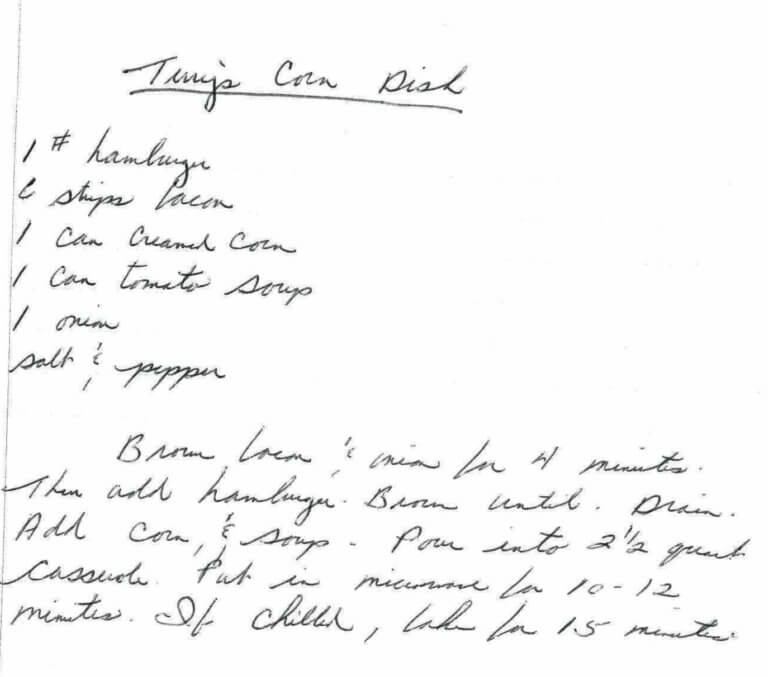 Terry's Corn Dish
1 # hamburger
6 strips bacon
1 can creamed corn
1 can tomato soup
1 onion
salt & pepper
Brown bacon & onion for 4 minutes.
Then add hamburger. Brown until. Drain.
Add corn, & soup. Pour into 2 1/2 quart
casserole. Put in microwave for 10-12
minutes. If chilled, bake for 15 minutes.